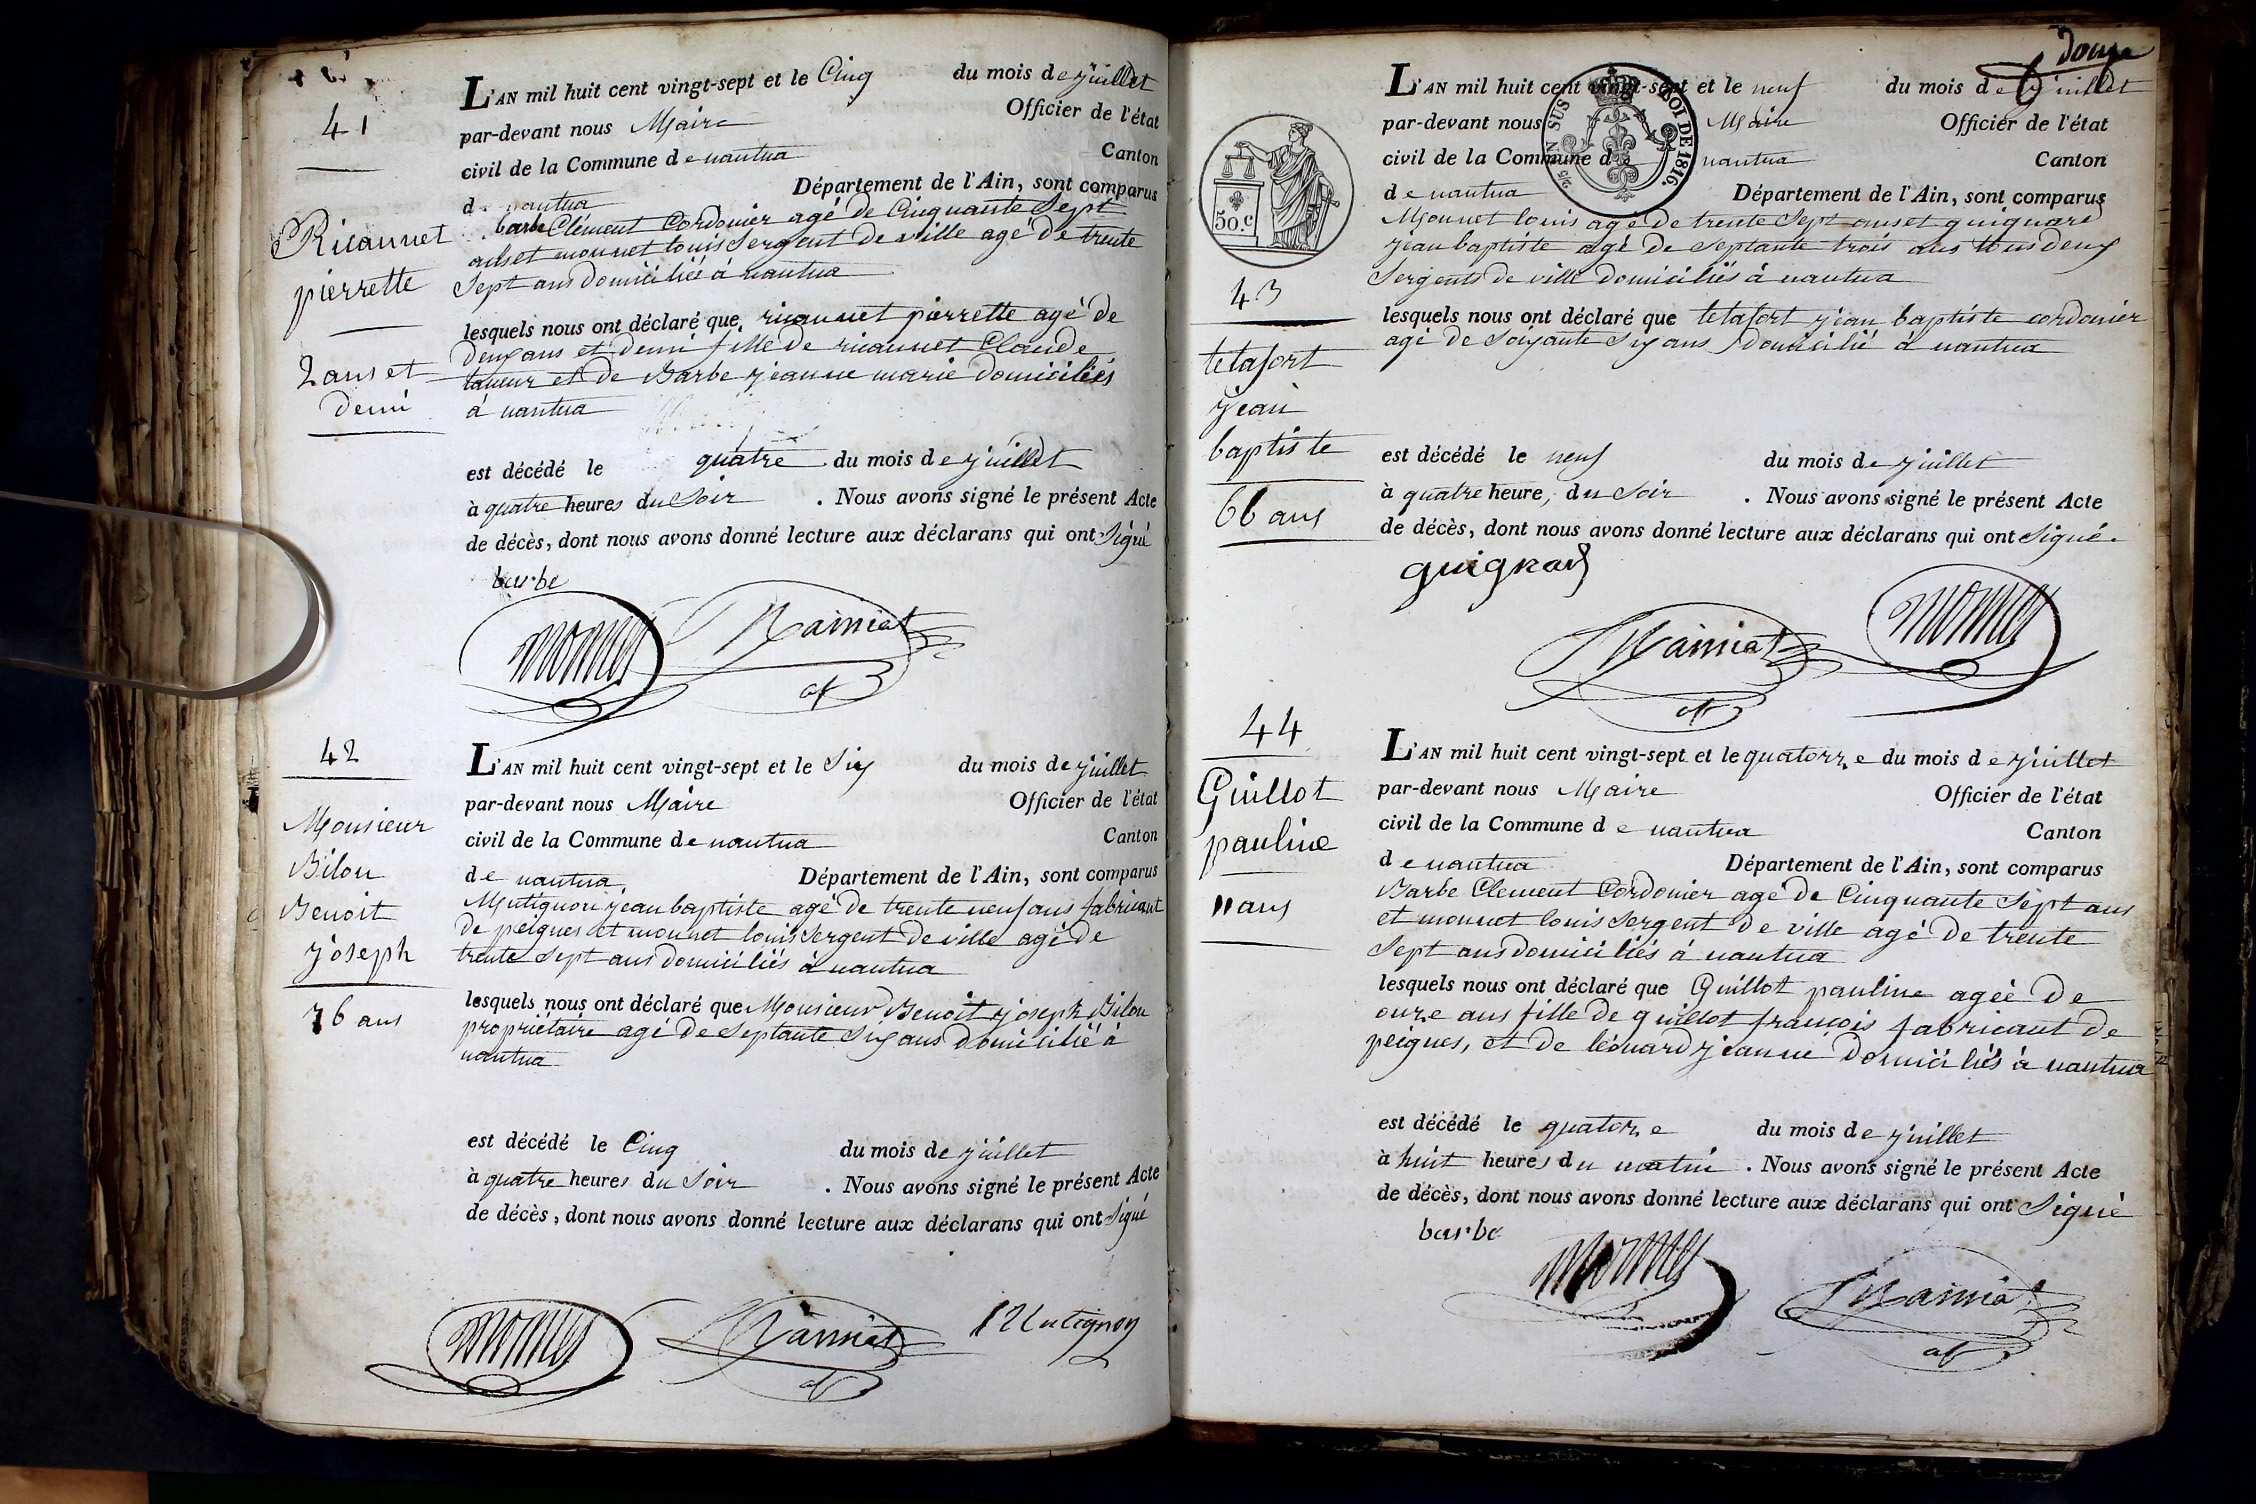 41
Ricannet
pierrette
2 ans et
demi
L'AN mil huit cent vingt-sept et le Cinq du mois de juillet
par-devant nous Maire Officier de l'état
civil de la Commune de nantua Canton
de nantua Département de l'Ain, sont comparus
barbe Clément Cordonier agé de Cinquante Sept
ans et monnet louis Sergent de ville agé de trente
Sept ans domiciliés à nantua
lesquels nous ont déclaré que ricannet pierrette agé de
deux ans et demi fille de ricannet Claude
taneur et de Barbe jeanne marie domiciliés
à nantua
est décédé le quatre du mois de juillet
à quatre heures du Soir . Nous avons signé le présent Acte
de décès, dont nous avons donné lecture aux déclarans qui ont Signé
barbe
monnet
42
Monsieur
Bilon
Benoit
joseph
76 ans
L'AN mil huit cent vingt-sept et le Six du mois de juillet
par-devant nous Maire Officier de l'état
civil de la Commune de nantua Canton
de nantua Département de l'Ain, sont comparus
Mutignon jean baptiste agé de trente neuf ans fabricant
de peignes et monnet louis Sergent de ville agé de
trente Sept ans domiciliés à nantua
lesquels nous ont déclaré que Monsieur Benoit joseph Bilon
propriétaire agé de Septante Six ans domicilié à
nantua
est décédé le Cinq du mois de juillet
à quatre heures du Soir . Nous avons signé le présent Acte
de décès, dont nous avons donné lecture aux déclarans qui ont Signé
monnet Mutignon
douze
50.C
LOI DE 1816.
43
tetafort
jean
baptiste
66 ans
L'AN mil huit cent vingt-sept et le neuf du mois de juillet
par-devant nous Maire Officier de l'état
civil de la Commune de nantua Canton
de nantua Département de l'Ain, sont comparus
Monnet louis agé de trente Sept ans et guignard
jean baptiste agé de Septante trois ans tous deux
Sergents de ville domiciliés à nantua
lesquels nous ont déclaré que tetafort jean baptiste cordonier
agé de Soixante Six ans domicilié à nantua
est décédé le neuf du mois de juillet
à quatre heures du Soir . Nous avons signé le présent Acte
de décès, dont nous avons donné lecture aux déclarans qui ont Signé.
guignard
monnet
44
Guillot
pauline
11 ans
L'AN mil huit cent vingt-sept et le quatorze du mois de juillet
par-devant nous Maire Officier de l'état
civil de la Commune de nantua Canton
de nantua Département de l'Ain, sont comparus
Barbe Clement Cordonier agé de Cinquante Sept ans
et monnet louis Sergent de ville agé de trente
Sept ans domiciliés à nantua
lesquels nous ont déclaré que Guillot pauline agée de
onze ans fille de guillot françois fabricant de
peignes, et de léonard jeanne domiciliés à nantua
est décédé le quatorze du mois de juillet
à huit heures du matin . Nous avons signé le présent Acte
de décès, dont nous avons donné lecture aux déclarans qui ont Signé
barbe
monnet